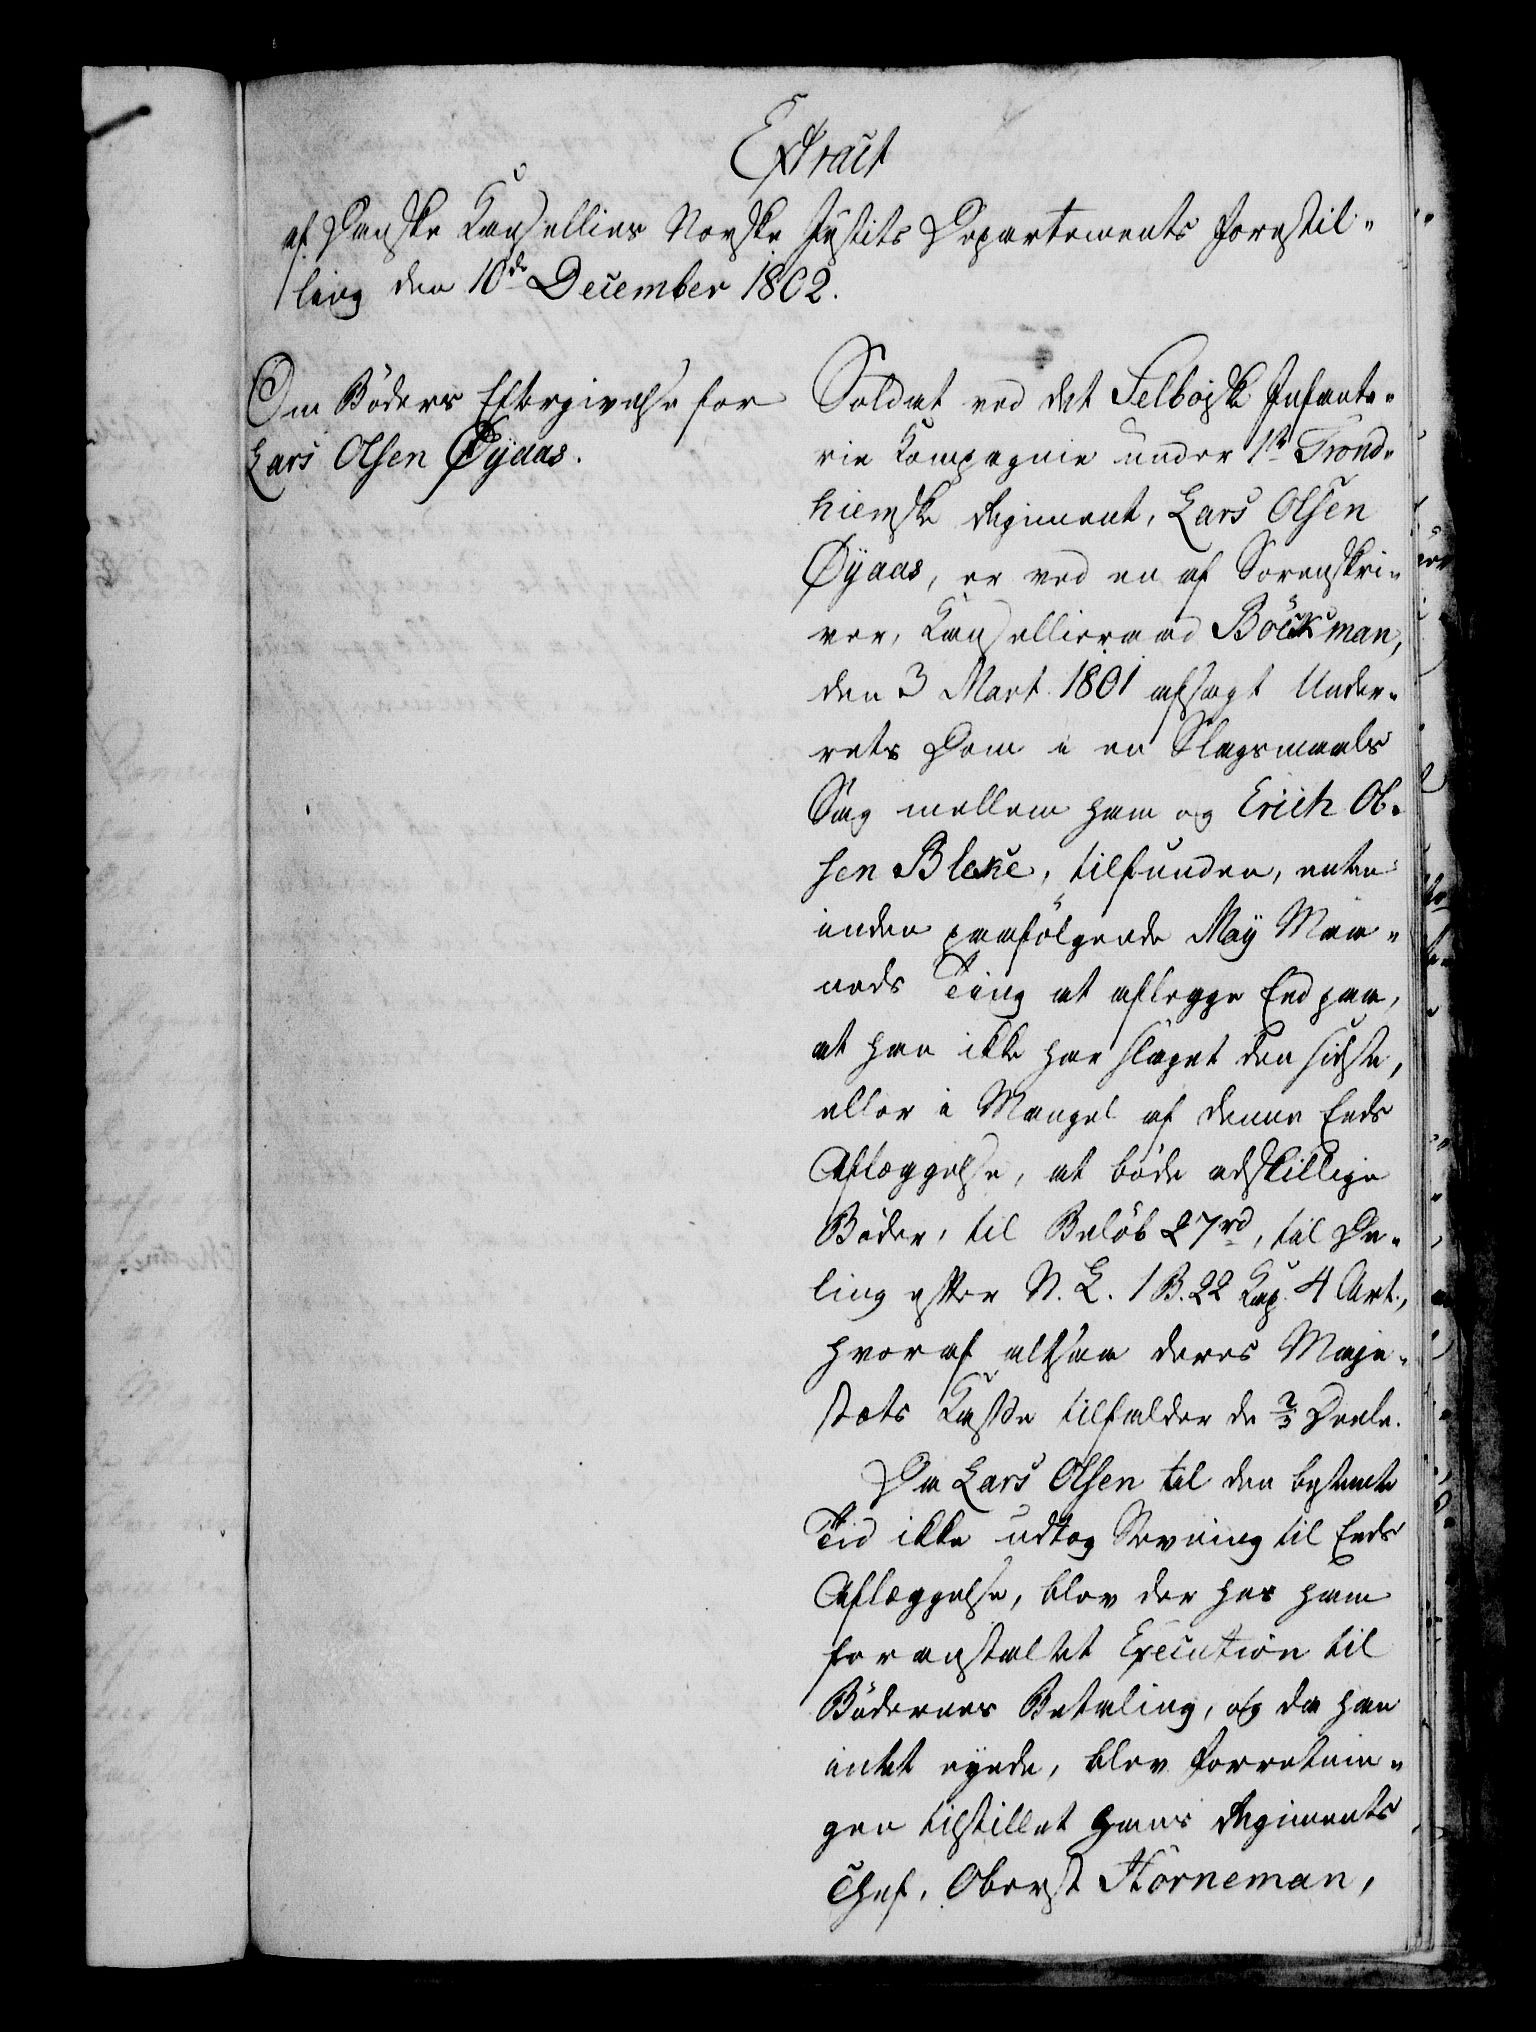 Extract
af Danske Kancelliets Norske Justits Departements Forestil-
ling den 10de December 1802.
Om Böders Eftergivelse for
Lars Olsen Øÿaas.
Soldat ved det Selboiske Infante-
rie Kompagnie under 1te Trond-
hiemske Regiment, Lars Olsen
Øÿaas, er ved en af Sorenskri-
ver, Kancellieraad Böckman,
den 3 Mart. 1801 afsagt Under-
rets Dom i en Slagsmaals
Sag mellem ham og Erich Ol-
sen Bleke, tilfunden, enten
inden paafölgende Maÿ Maa-
neds Ting at aflegge Eed paa,
at han ikke har slaget den sidste,
eller i Mangel af denne Eeds
Aflæggelse, at bøde adskillige
Böder, til Belöb 27 rd, til De-
ling efter N. L. 1 B. 22 Kap. 4 Art.,
hvoraf altsaa deres Maje-
stæts Kasse tilfalder de 2/3 Deele.
Da Lars Olsen til den bestemte
Tid ikke udtog Stevning til Eeds
Aflæggelse, blev der hos ham
foranstaltet Execution til
Bödernes Betaling, og da han
intet eyede, blev Forretnin-
gen tilstillet hans Regiments
Chef, Oberst Horneman,